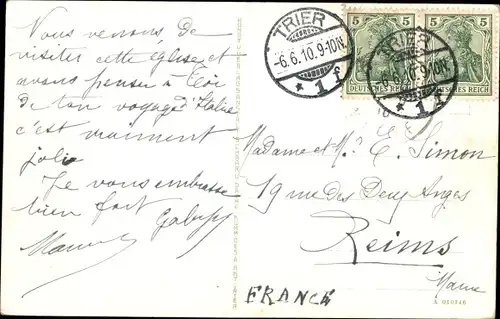 Nous venons de
visiter cette église et
avons pensé à toi
de ton voyage d'Italie
c'est vraiment
joli
Je vous embrasse
bien fort
TRIER
-6.6.10.9-10N.
* 1 f
TRIER
-6.6.10.9-10N.
* 1 f
5 5
DEUTSCHES REICH
5 5
DEUTSCHES REICH
Madame et Mr E. Simon
19 rue des Deux Anges
Reims
Marne
FRANCE